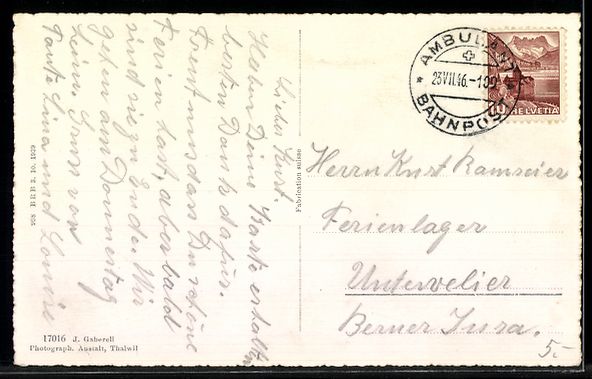 Lieber Kurt.
Haben Deine Karte erhalten
besten Dank dafür.
Freut uns das Du schöne
Ferien hast, aber bald
sind sie zu Ende. Wir
gehen am Donnerstag
heim. Gruss von
Tante Lina und Louise
Fabrication suisse
968 BRB 3. 10. 1939
17016 J. Gaberell
Photograph. Anstalt, Thalwil
AMBULANT
23.VII.46.-1
BAHNPOST
10 HELVETIA
Herrn Kurt Ramseier
Ferienlager
Undervelier
Berner Jura.
5.-